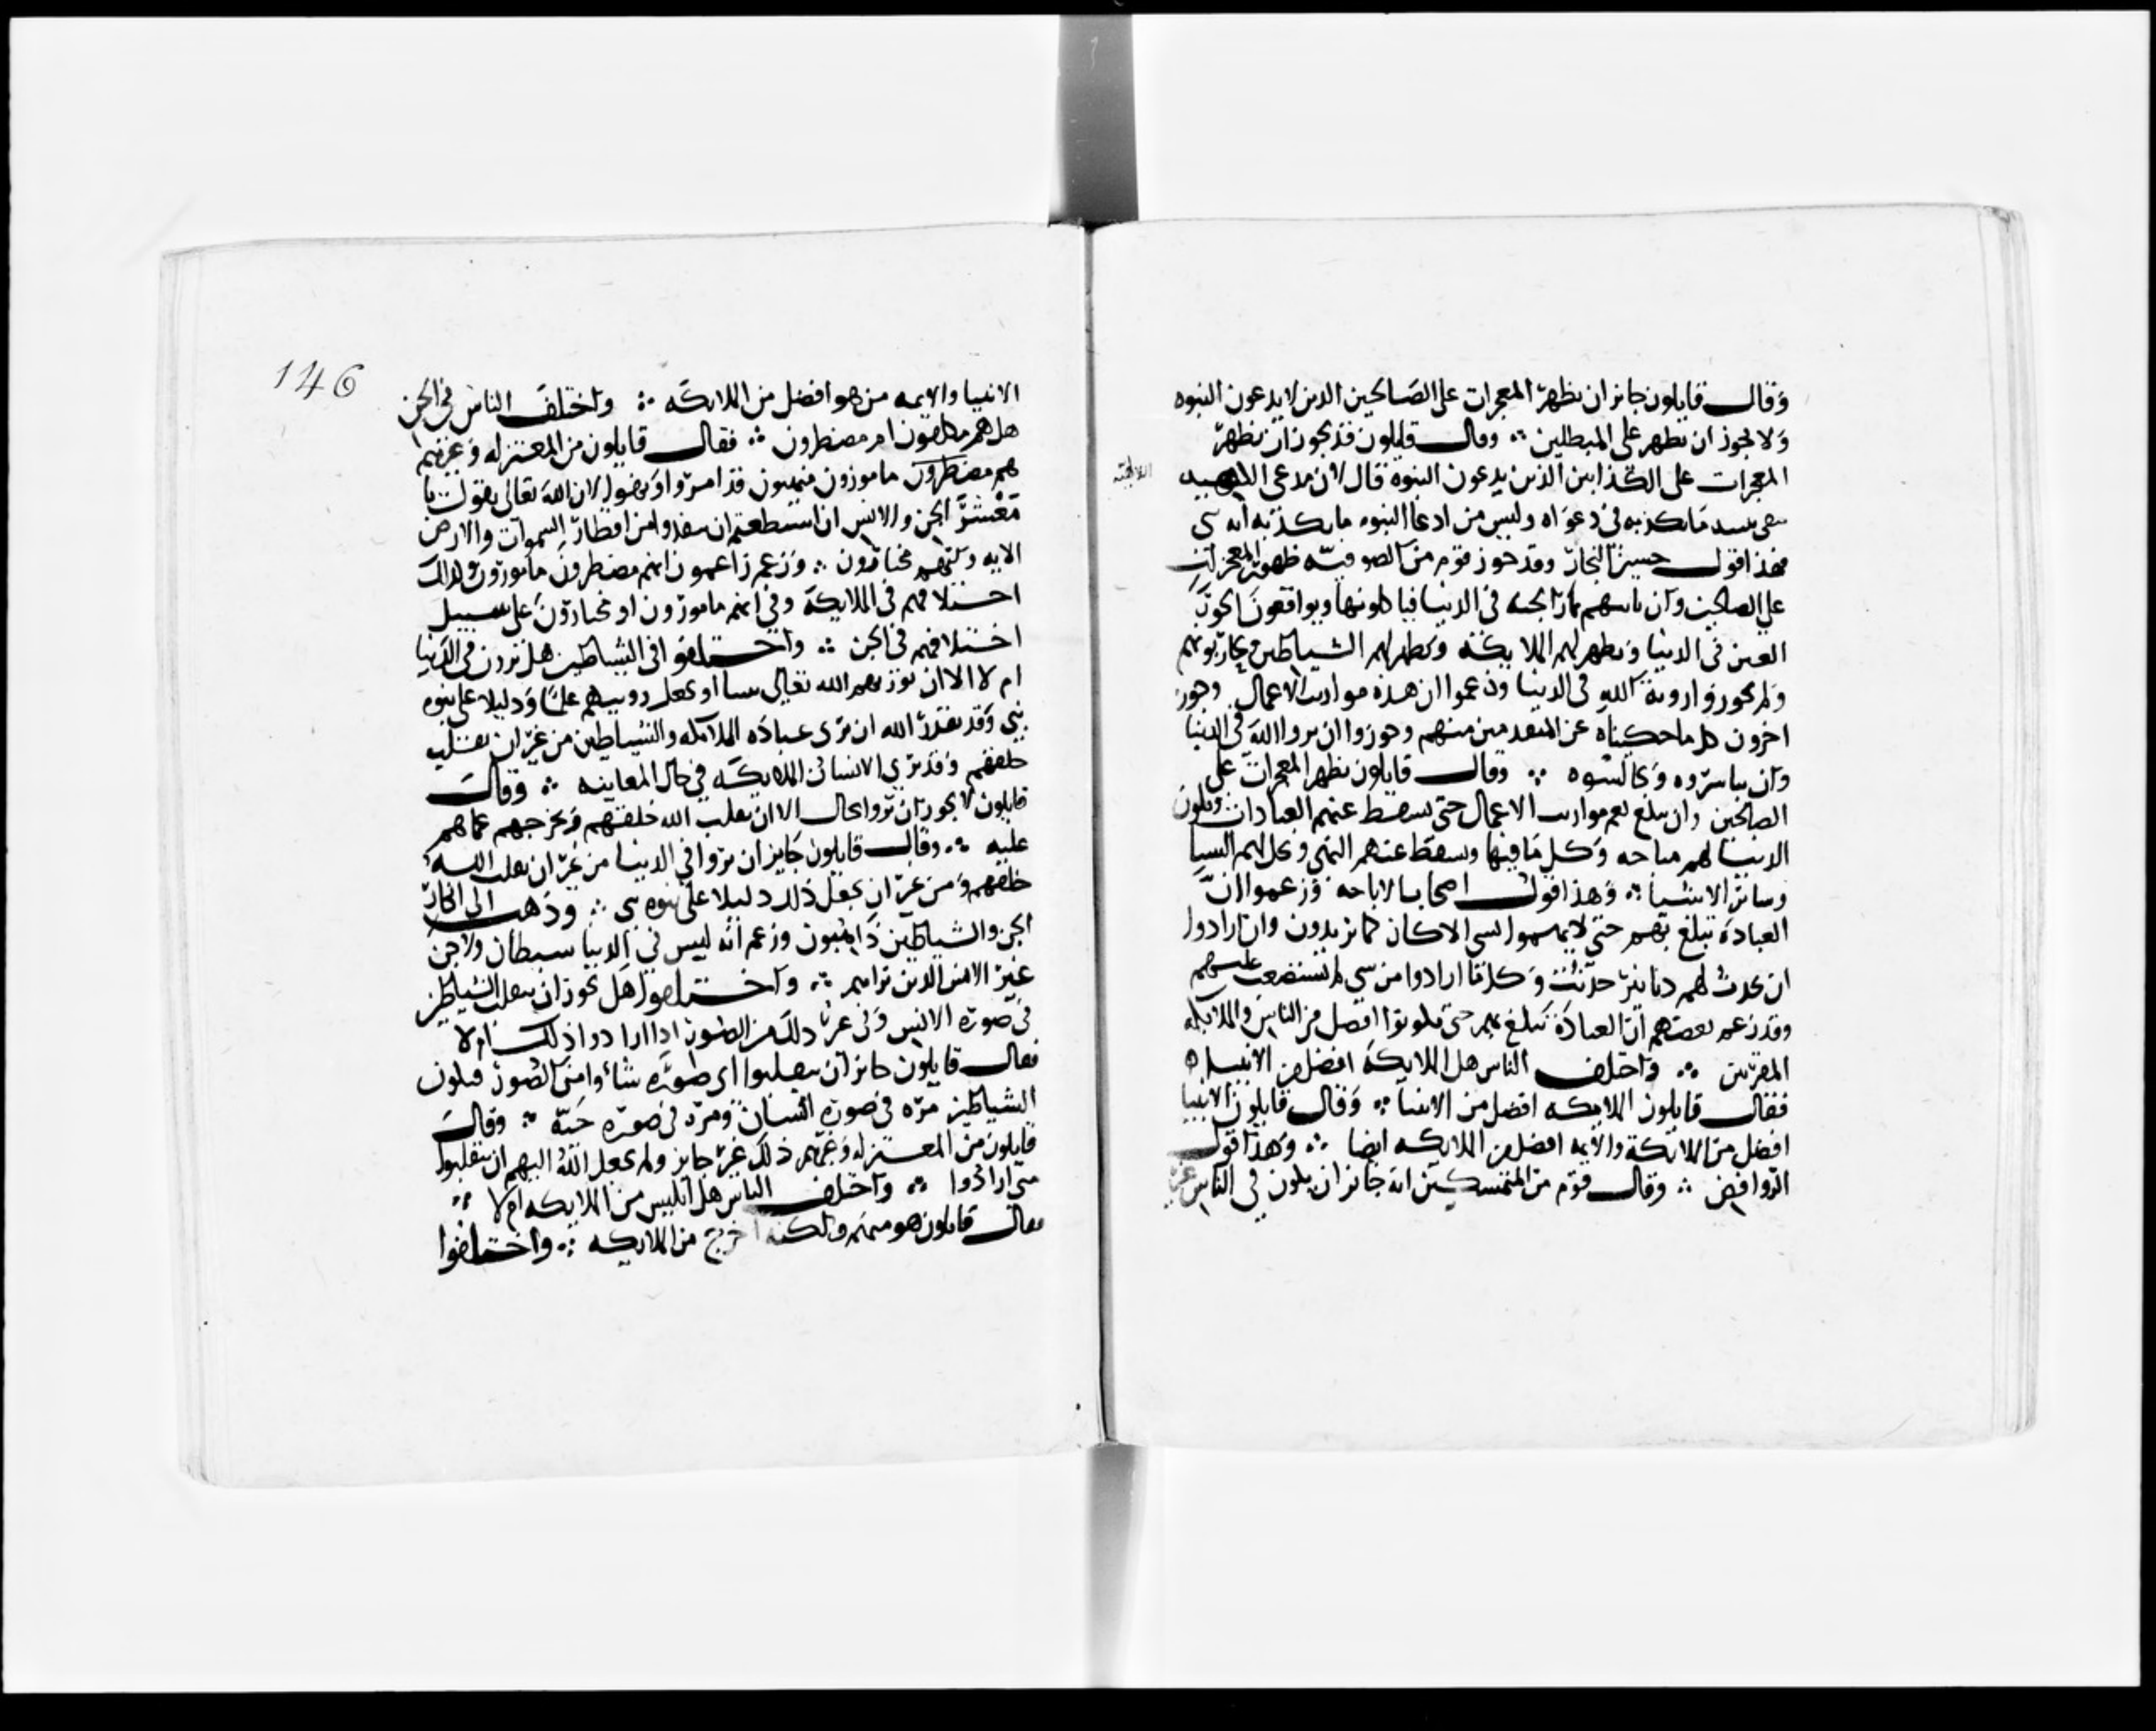 وقال قايلون جايز ان تظهر المعجزات على الصالحين الذين لا يدعون النبوه
ولا يجوز ان تظهر على المبطلين ∴ وقال قايلون قد يجوز ان تظهر
المعجزات على الكذابين الذين يدعون الالهيه ولا يجوز ان
المعجزات على الكذابين الذين يدعون النبوه قال لان مدعى
الالاهيه
فى دعواه وليس من ادعا النبوه ما يكذبه انه نبى
فهذا قول حسين النجار وقد جوز قوم من الصوفيه ظهور المعجزات
على الصالحين وان تاتيهم ثمار الجنه فى الدنيا فياكلونها ويواقعون الحور
العين فى الدنيا وتظهر لهم الملايكه وتظهر لهم الشياطين فيحاربونهم
ولم يجوزوا روية الله فى الدنيا وزعموا ان هذه مواريث الاعمال وجوز
اخرون كل ما حكيناه عن المتقدمين منهم وجوزوا ان يروا الله فى الدنيا
وان يباشروه ويجالسوه ∴ وقال قايلون تظهر المعجزات على
الصالحين وان تبلغ بهم مواريث الاعمال حتى تسقط عنهم العبادات وتكون
الدنيا لهم مباحه وكل ما فيها وسقط عنهم النهى ويحل لهم النسا
وساير الاشيا ∴ وهذا قول اصحاب الاباحه وزعموا ان
العباده تبلغ بهم حتى لا يهموا بشى الا كان كما يريدون وان ارادوا
ان تحدث لهم دنانير حدثت وكلما ارادوا من شى لم يستصعب عليهم
وقد زعم بعضهم ان العباده تبلغ بهم حتى يكونوا افضل من النبيين والملايكه
المقربين ∴ واختلف الناس هل الملايكة افضل من الانبيا
فقال قايلون الملايكه افضل من الانبيا ∴ وقال قايلون الانبيا
افضل من الملايكة والايمه افضل من الملايكه ايضا ∴ وهذا قول
الروافض ∴ وقال قوم من المتنسكين انه جايز ان يكون فى الناس غير
146
الانبيا والايمه من هو افضل من الملايكه ∴ واختلف الناس فى الجن
هل هم مكلفون ام مضطرون ∴ فقال قايلون من المعتزله وغيرهم
هم مضطرون مامورون منهيون قد امروا ونهوا لان الله تعالى يقول يا
معشر الجن والانس ان استطعتم ان تنفذوا من اقطار السموات والارض
الايه وانهم مختارون ∴ وزعم زاعمون انهم مضطرون مامورون وكذلك
اختلافهم فى الملايكة وفى انهم مامورون او مختارون على سبيل
اختلافهم فى الجن ∴ واختلفوا فى الشياطين هل يرون فى الدنيا
ام لا الا ان يريهم الله تعالى نبيا او يجعل رويتهم علما ودليلا على نبوه
نبى وقد يقدر الله ان يرى عباده الملايكه والشياطين من غير ان يقلب
خلقهم وقد يرى الانسان الملايكه فى حال المعاينه ∴ وقال
قايلون لا يجوز ان يروا بحال الا ان يقلب الله خلقهم ويخرجهم عما هم
عليه ∴ وقال قايلون جايز ان يروا فى الدنيا من غير ان يقلب الله
خلقهم ومن غير ان يجعل ذلك دليلا على نبوه نبى ∴ وذهب الى انكار
الجن والشياطين ذاهبون وزعم انه ليس فى الدنيا شيطان ولا جن
غير الانس الذين نراهم ∴ واختلفوا هل يجوز ان ينقلب الشياطين
فى صورة الانس وفى غير ذلك من الصور اذا ارادوا ذلك ام لا
فقال قايلون جايز ان ينقلبوا اى صورة شاءوا من الصور فيكون
الشياطين مره فى صورة انسان ومره فى صورة حية ∴ وقال
قايلون من المعتزله وغيرهم ذلك غير جايز ولم يجعل الله اليهم ان ينقلبوا
متى ارادوا ∴ واختلف الناس هل ابليس من الملايكه ام لا ∴
فقال قايلون هو منهم ولكنه اخرج من الملايكه ∴ واختلفوا